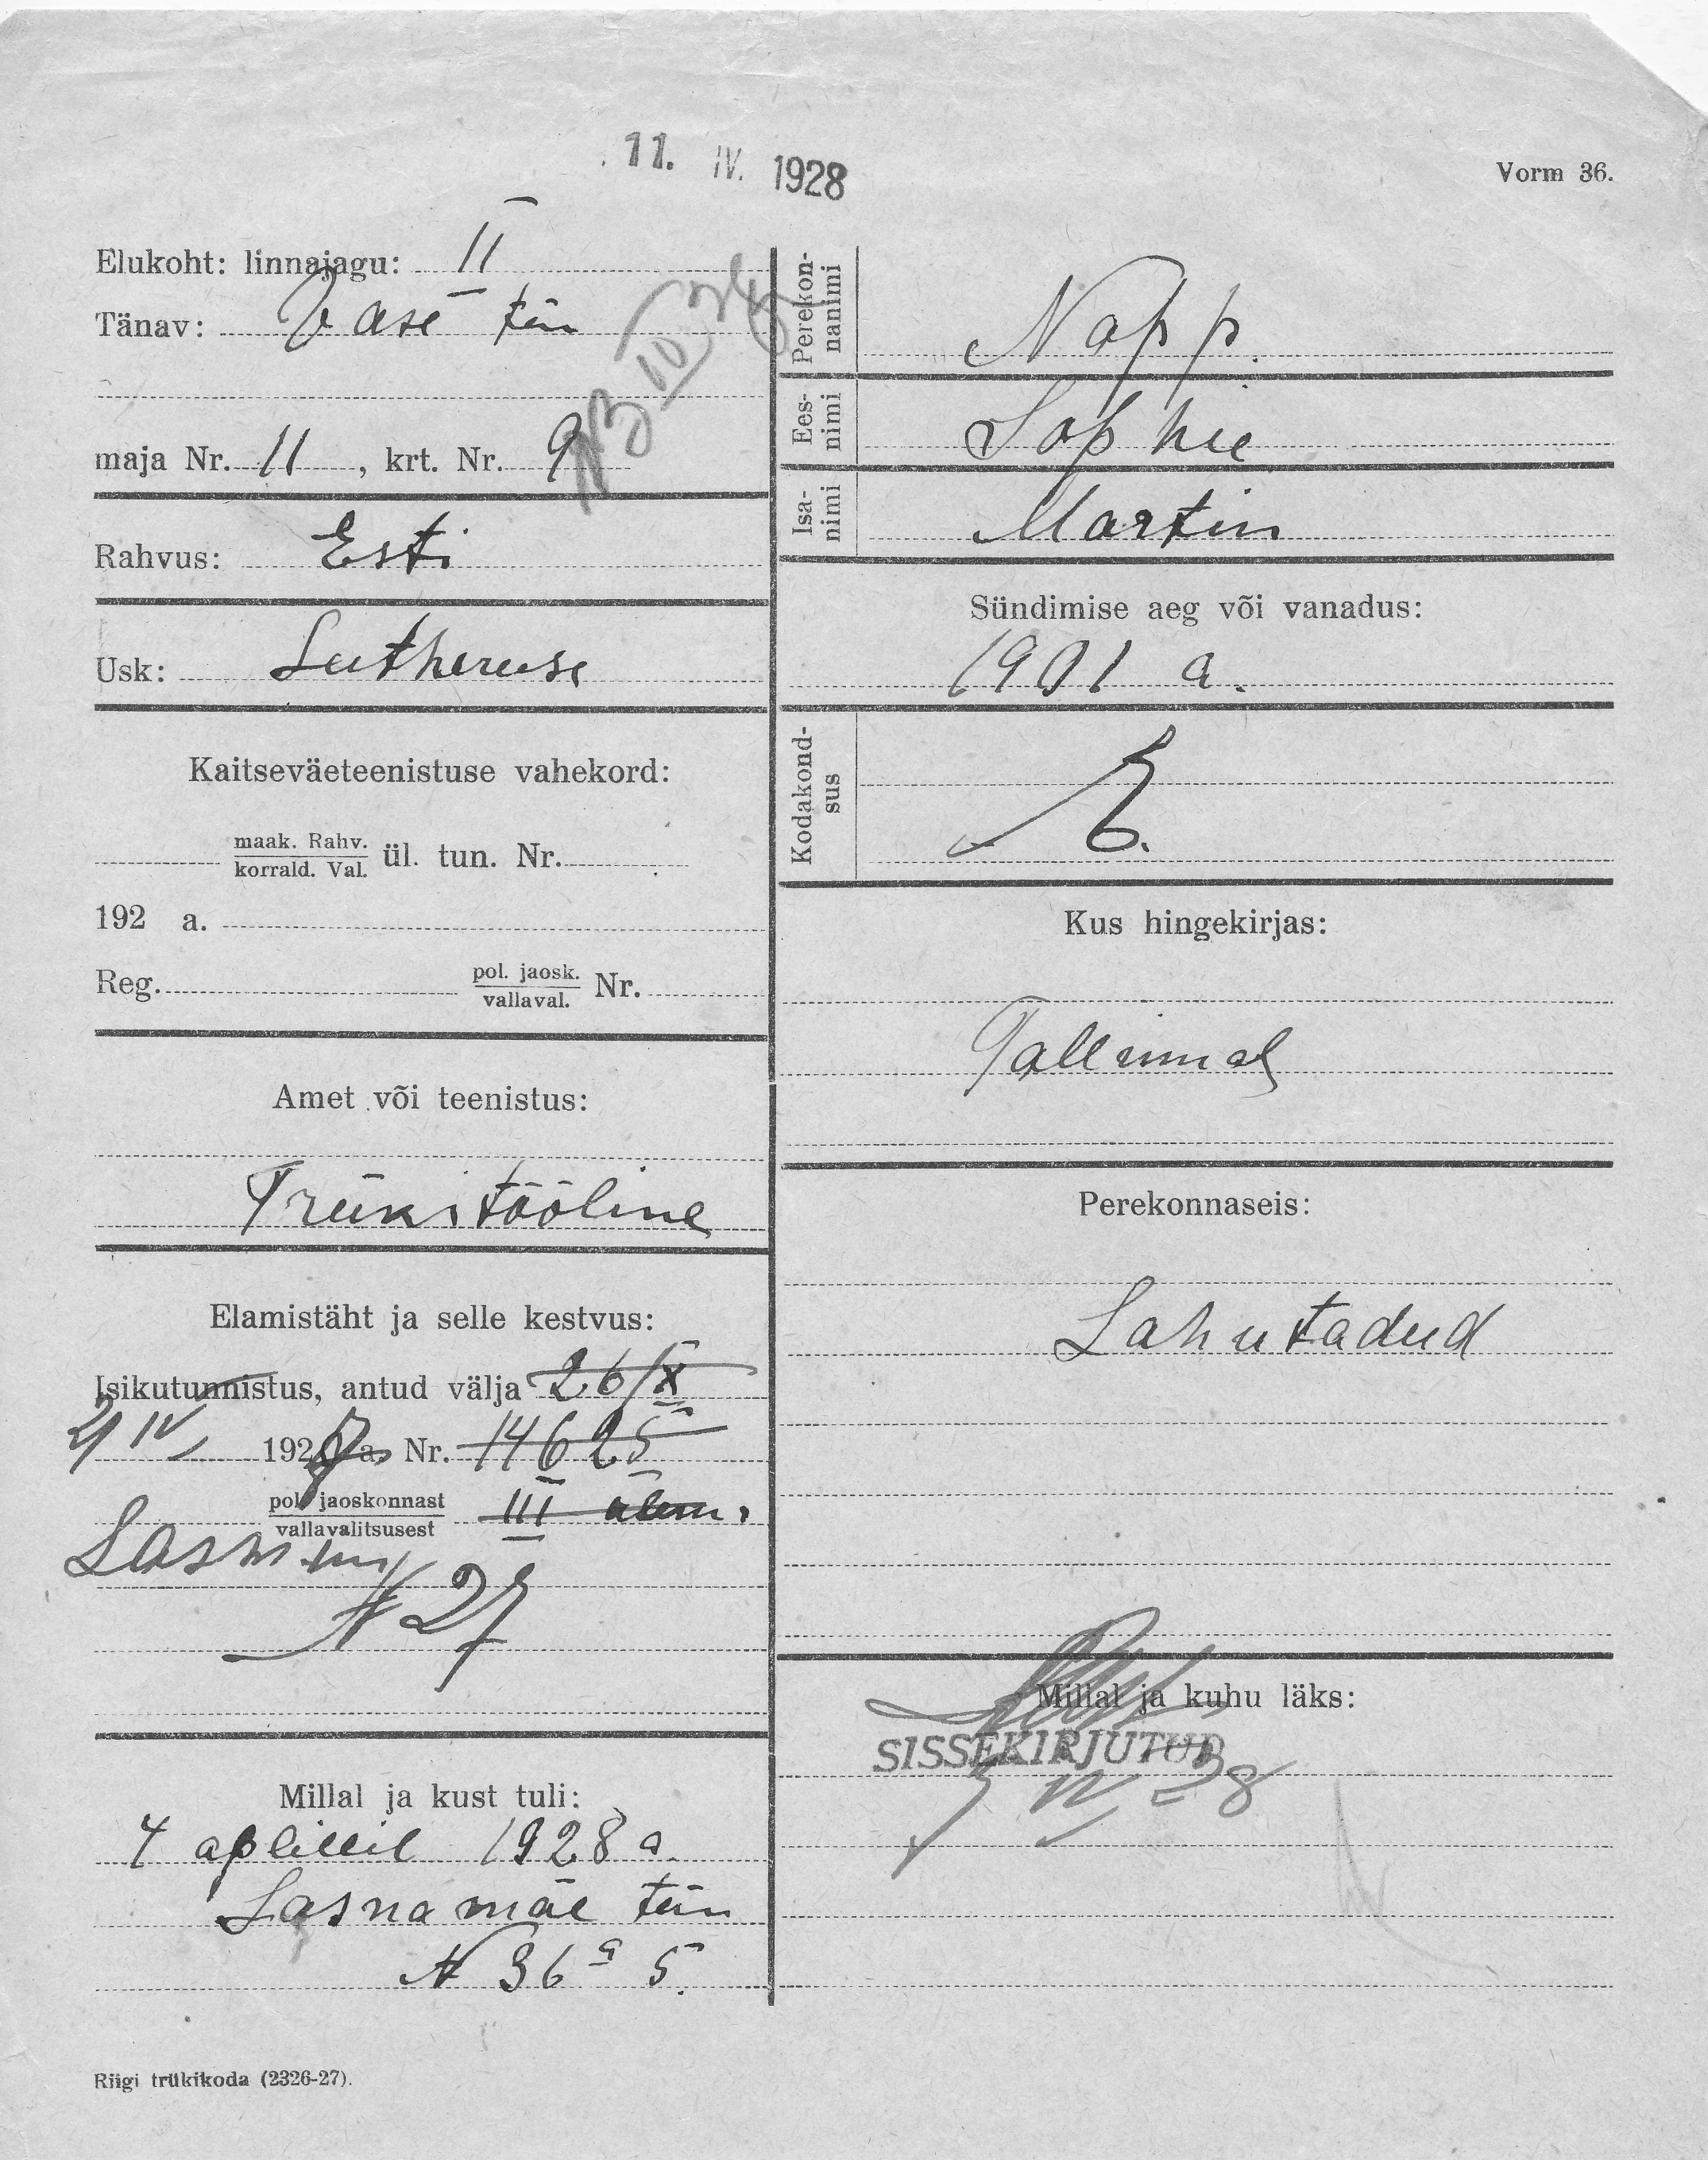 11. IV. 1928
Vorm 36.
Elukoht: linnajagu: II
Tänav: Vase tän
maja Nr. 11, krt. Nr. 9
Rahvus: Esti
Usk: Lutheruse
Kaitseväeteenistuse vahekord:
maak. Rahv.
korrald. Val. ül. tun. Nr.
192 a.
Reg. pol. jaosk.
vallaval. Nr.
Amet või teenistus:
Trükitööline
Elamistäht ja selle kestvus:
Isikutunnistus, antud välja 26/X
2/IV 1928 a. Nr. 14625
pol. jaoskonnast III
vallavalitsusest
N 27
Millal ja kust tuli:
4 aplillil 1928 a.
Lasnamäe tän
N 36a 5.
Riigi trükikoda (2326-27).
Perekon-
nanimi
Napp.
Ees-
nimi
Sophie
Isa-
nimi
Martin
Sündimise aeg või vanadus:
1901 a.
Kodakond-
sus
E.
Kus hingekirjas:
Tallinnas
Perekonnaseis:
Lahutadud
Millal ja kuhu läks:
SISSEKIRJUTUD
5 IV 28